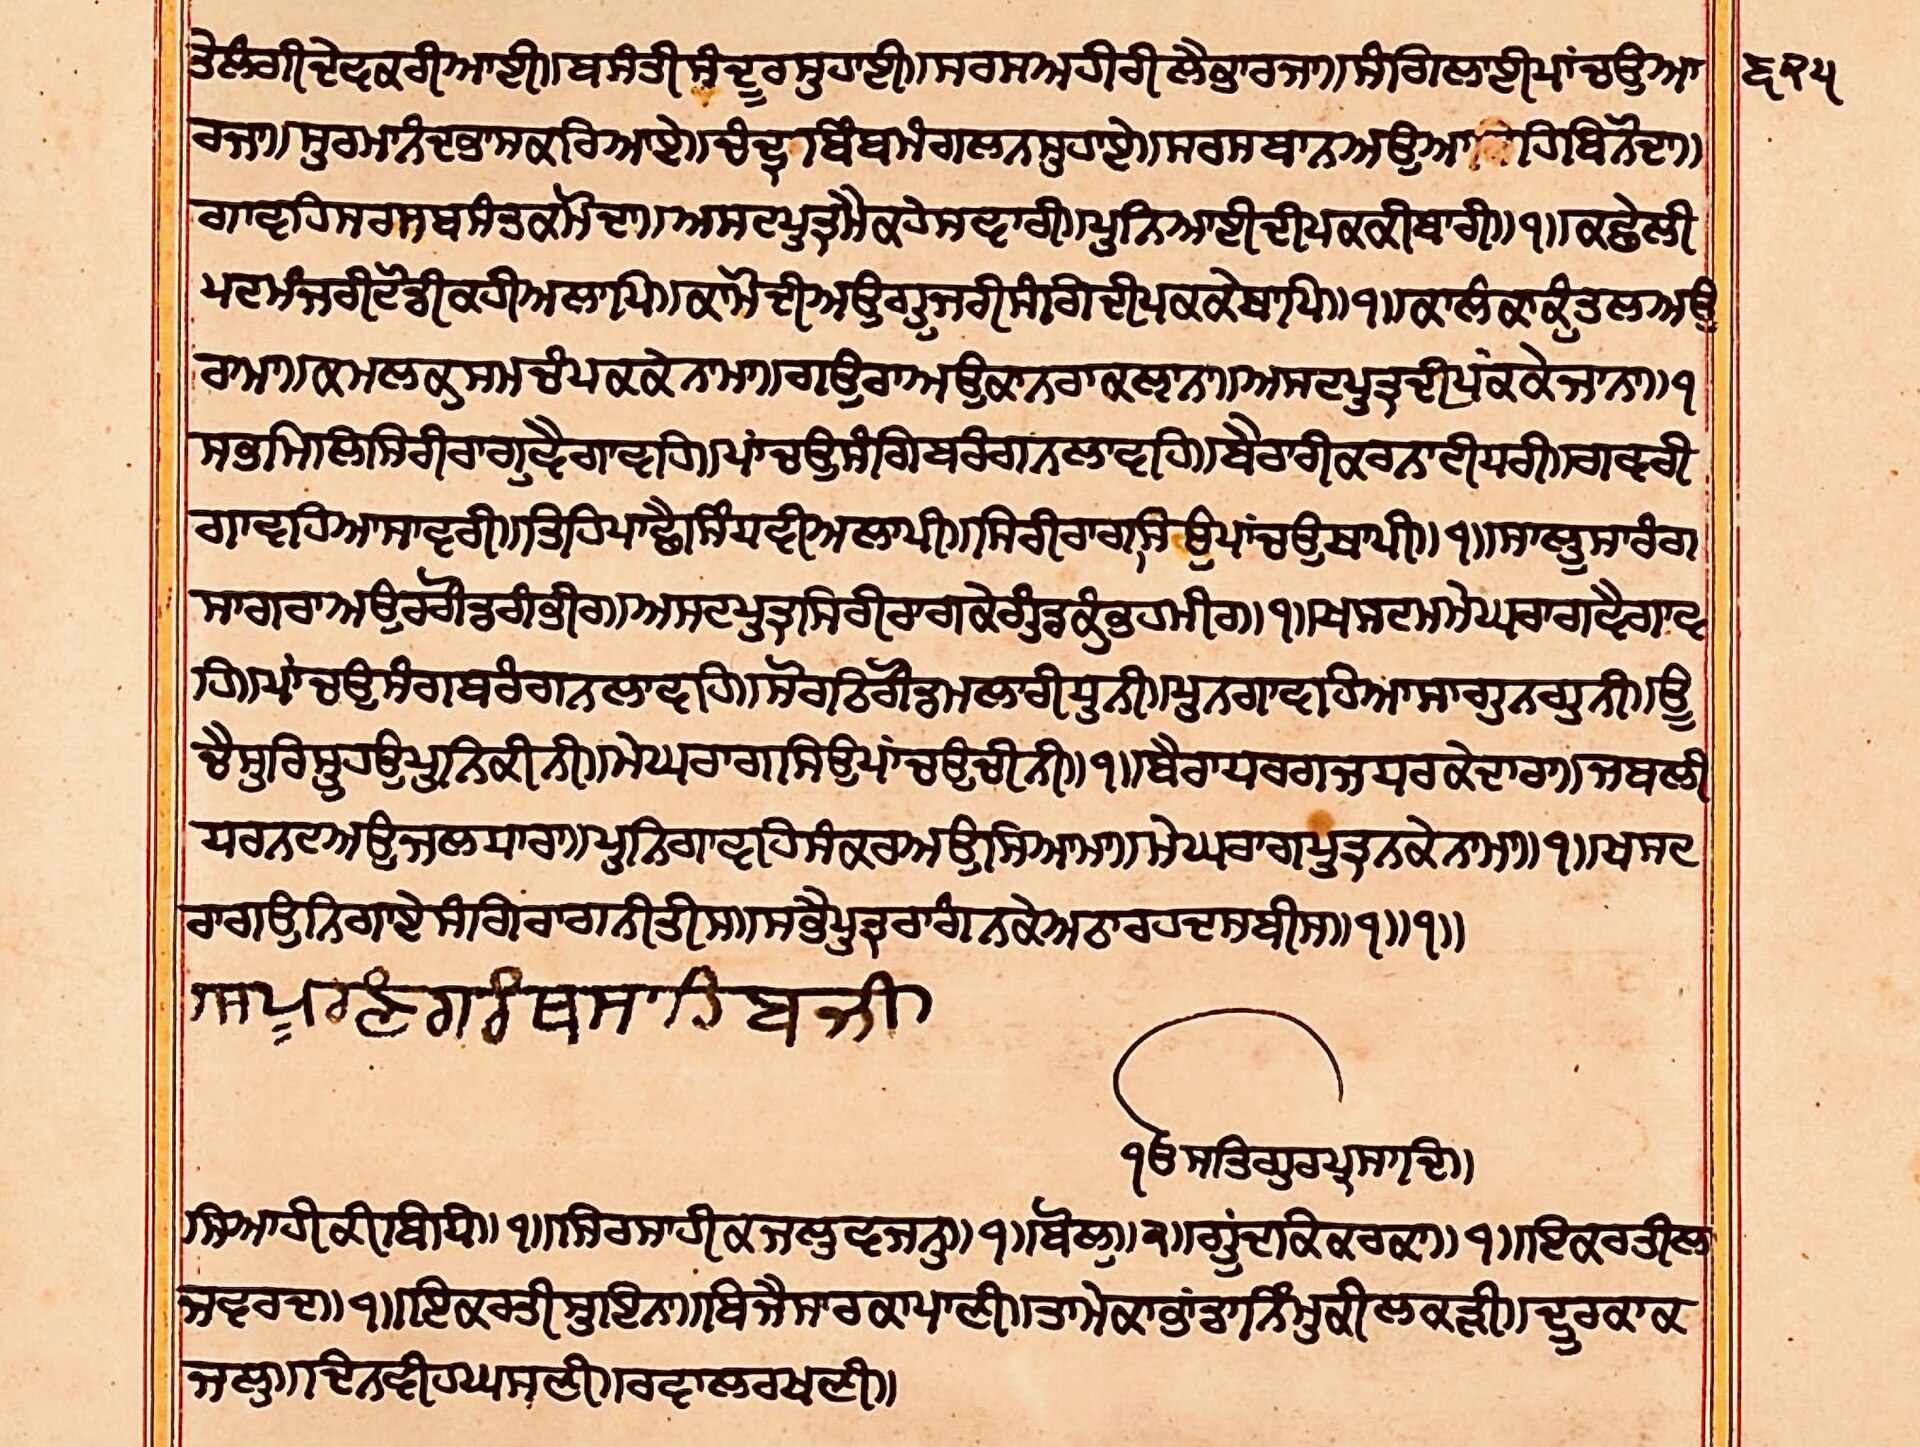 ਤੇਲੰਗੀਦੇਵਕਰੀਆਈ॥ਬਸੰਤੀਸੰਦੂਰਸੁਹਾਈ॥ਸਰਸਅਹੀਰੀਲੈਭਾਰਜਾ॥ਸੰਗਿਲਾਈਪਾਂਚਉਆ
ਰਜਾ॥ਸੁਰਮਾਨੰਦਭਾਸਕਰਿਆਏ॥ਚੰਦ੍ਰਬਿੰਬਮੰਗਲਨਸੁਹਾਏ॥ਸਰਸਬਾਨਅਉਆਹਿਬਿਨੋਦਾ॥
ਗਾਵਹਿਸਰਸਬਸੰਤਕਮੋਦਾ॥ਅਸਟਪੁਤ੍ਰਮੈਕਹੇਸਵਾਰੀ॥ਪੁਨਿਆਈਦੀਪਕਕੀਬਾਰੀ॥੧॥ਕਛੇਲੀ
ਪਟਮੰਜਰੀਟੋਡੀਕਹੀਅਲਾਪਿ॥ਕਾਮੋਦੀਅਉਗੂਜਰੀਸੰਗਿਦੀਪਕਕੇਥਾਪਿ॥੧॥ਕਾਲੰਕਾਕੁੰਤਲਅਉ
ਰਾਮਾ॥ਕਮਲਕੁਸਮਚੰਪਕਕੇਨਾਮਾ॥ਗਉਰਾਅਉਕਾਨਰਾਕਲ੍ਯਾਨਾ॥ਅਸਟਪੁਤ੍ਰਦੀਪਕਕੇਜਾਨਾ॥੧
ਸਭਮਿਲਿਸਿਰੀਰਾਗੁਵੈਗਾਵਹਿ॥ਪਾਂਚਉਸੰਗਿਬਰੰਗਨਲਾਵਹਿ॥ਬੈਰਾਰੀਕਰਨਾਟੀਧਰੀ॥ਗਵਰੀ
ਗਾਵਹਿਆਸਾਵਰੀ॥ਤਿਹਿਪਾਛੈਸਿੰਧਵੀਅਲਾਪੀ॥ਸਿਰੀਰਾਗਸਿਉਪਾਂਚਉਥਾਪੀ॥੧॥ਸਾਲੂਸਾਰੰਗ
ਸਾਗਰਾਅਉਰਗੋਂਡਗੰਭੀਰ॥ਅਸਟਪੁਤ੍ਰਸਿਰੀਰਾਗਕੇਗੁੰਡਕੁੰਭਹਮੀਰ॥੧॥ਖਸਟਮਮੇਘਰਾਗਵੈਗਾਵ
ਹਿ॥ਪਾਂਚਉਸੰਗਬਰੰਗਨਲਾਵਹਿ॥ਸੋਰਠਿਗੋਂਡਮਲਾਰੀਧੁਨੀ॥ਪੁਨਗਾਵਹਿਆਸਾਗੁਨਗੁਨੀ॥ਊ
ਚੈਸੁਰਿਸੂਹਉਪੁਨਿਕੀਨੀ॥ਮੇਘਰਾਗਸਿਉਪਾਂਚਉਚੀਨੀ॥੧॥ਬੈਰਾਧਰਗਜਧਰਕੇਦਾਰਾ॥ਜਬਲੀ
ਧਰਨਟਅਉਜਲਧਾਰਾ॥ਪੁਨਿਗਾਵਹਿਸੰਕਰਅਉਸਿਆਮਾ॥ਮੇਘਰਾਗਪੁਤ੍ਰਨਕੇਨਾਮਾ॥੧॥ਖਸਟ
ਰਾਗਉਨਿਗਾਏਸੰਗਿਰਾਗਨੀਤੀਸ॥ਸਭੈਪੁਤ੍ਰਰਾਗੰਨਕੇਅਠਾਰਹਦਸਬੀਸ॥੧॥੧॥
੧ਓਸਤਿਗੁਰਪ੍ਰਸਾਦਿ॥
ਸਿਆਹੀਕੀਬਿਧਿ॥੧॥ਸਿਰਸਾਹੀਕਜਲੁਵਜਨੁ॥੧॥ਬੋਲੁ॥੨॥ਗੂੰਦਕਿਕਰਕਾ॥੧॥ਇਕਰਤੀਲ
ਜਵਰਦ॥੧॥ਇਕਰਤੀਸੁਇਨਾ॥ਬਿਜੈਸਾਰਕਾਪਾਣੀ॥ਤਾਮੇਕਾਭਾਂਡਾਨਿੰਮੁਕੀਲਕੜੀ॥ਦੂਰਕਾਕ
ਜਲੁ॥ਦਿਨਵੀਹਘਸਣੀ॥ਰਵਾਲਰਖਣੀ॥